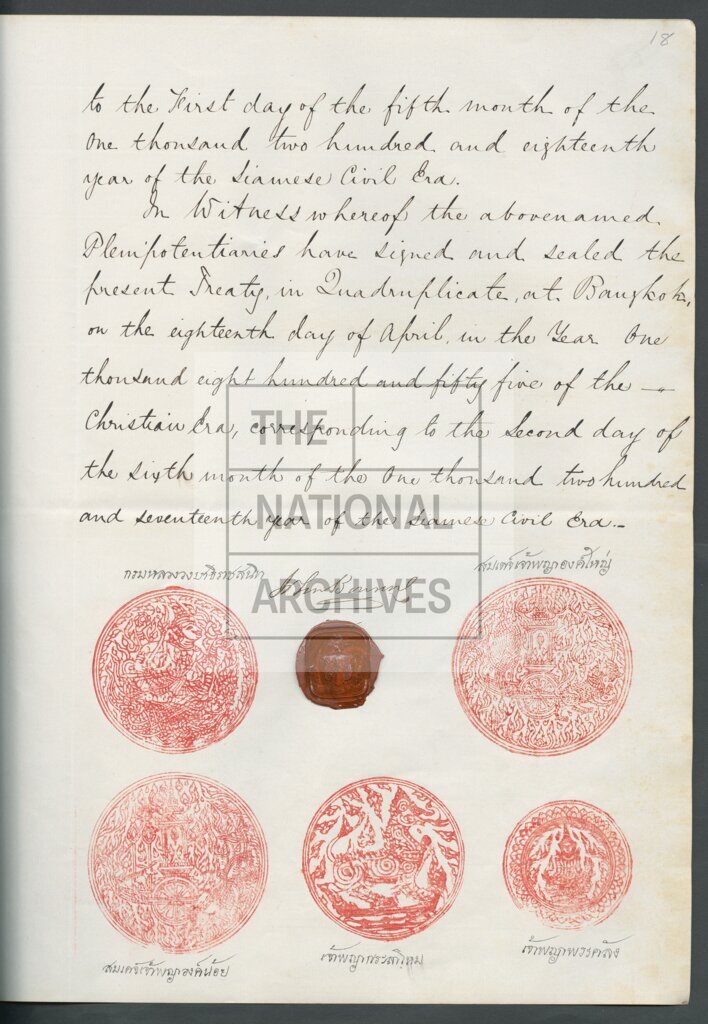 18
to the First day of the fifth month of the
One thousand two hundred and eighteenth
year of the Siamese Civil Era.
In Witness whereof the abovenamed
Plenipotentiaries have signed and sealed the
present Treaty, in Quadruplicate, at Bangkok,
on the eighteenth day of April, in the Year One
thousand eight hundred and fifty five of the —
Christian Era, corresponding to the Second day of
the sixth month of the One thousand two hundred
and seventeenth year of the Siamese Civil Era.—
THE
NATIONAL
ARCHIVES
กรมหลวงวงษาธิราชสนิท
John Bowring
สมเดจ์เจ้าพญาองค์ใหญ่
สมเดจ์เจ้าพญาองค์น้อย
เจ้าพญา
เจ้าพญาพรรคลัง